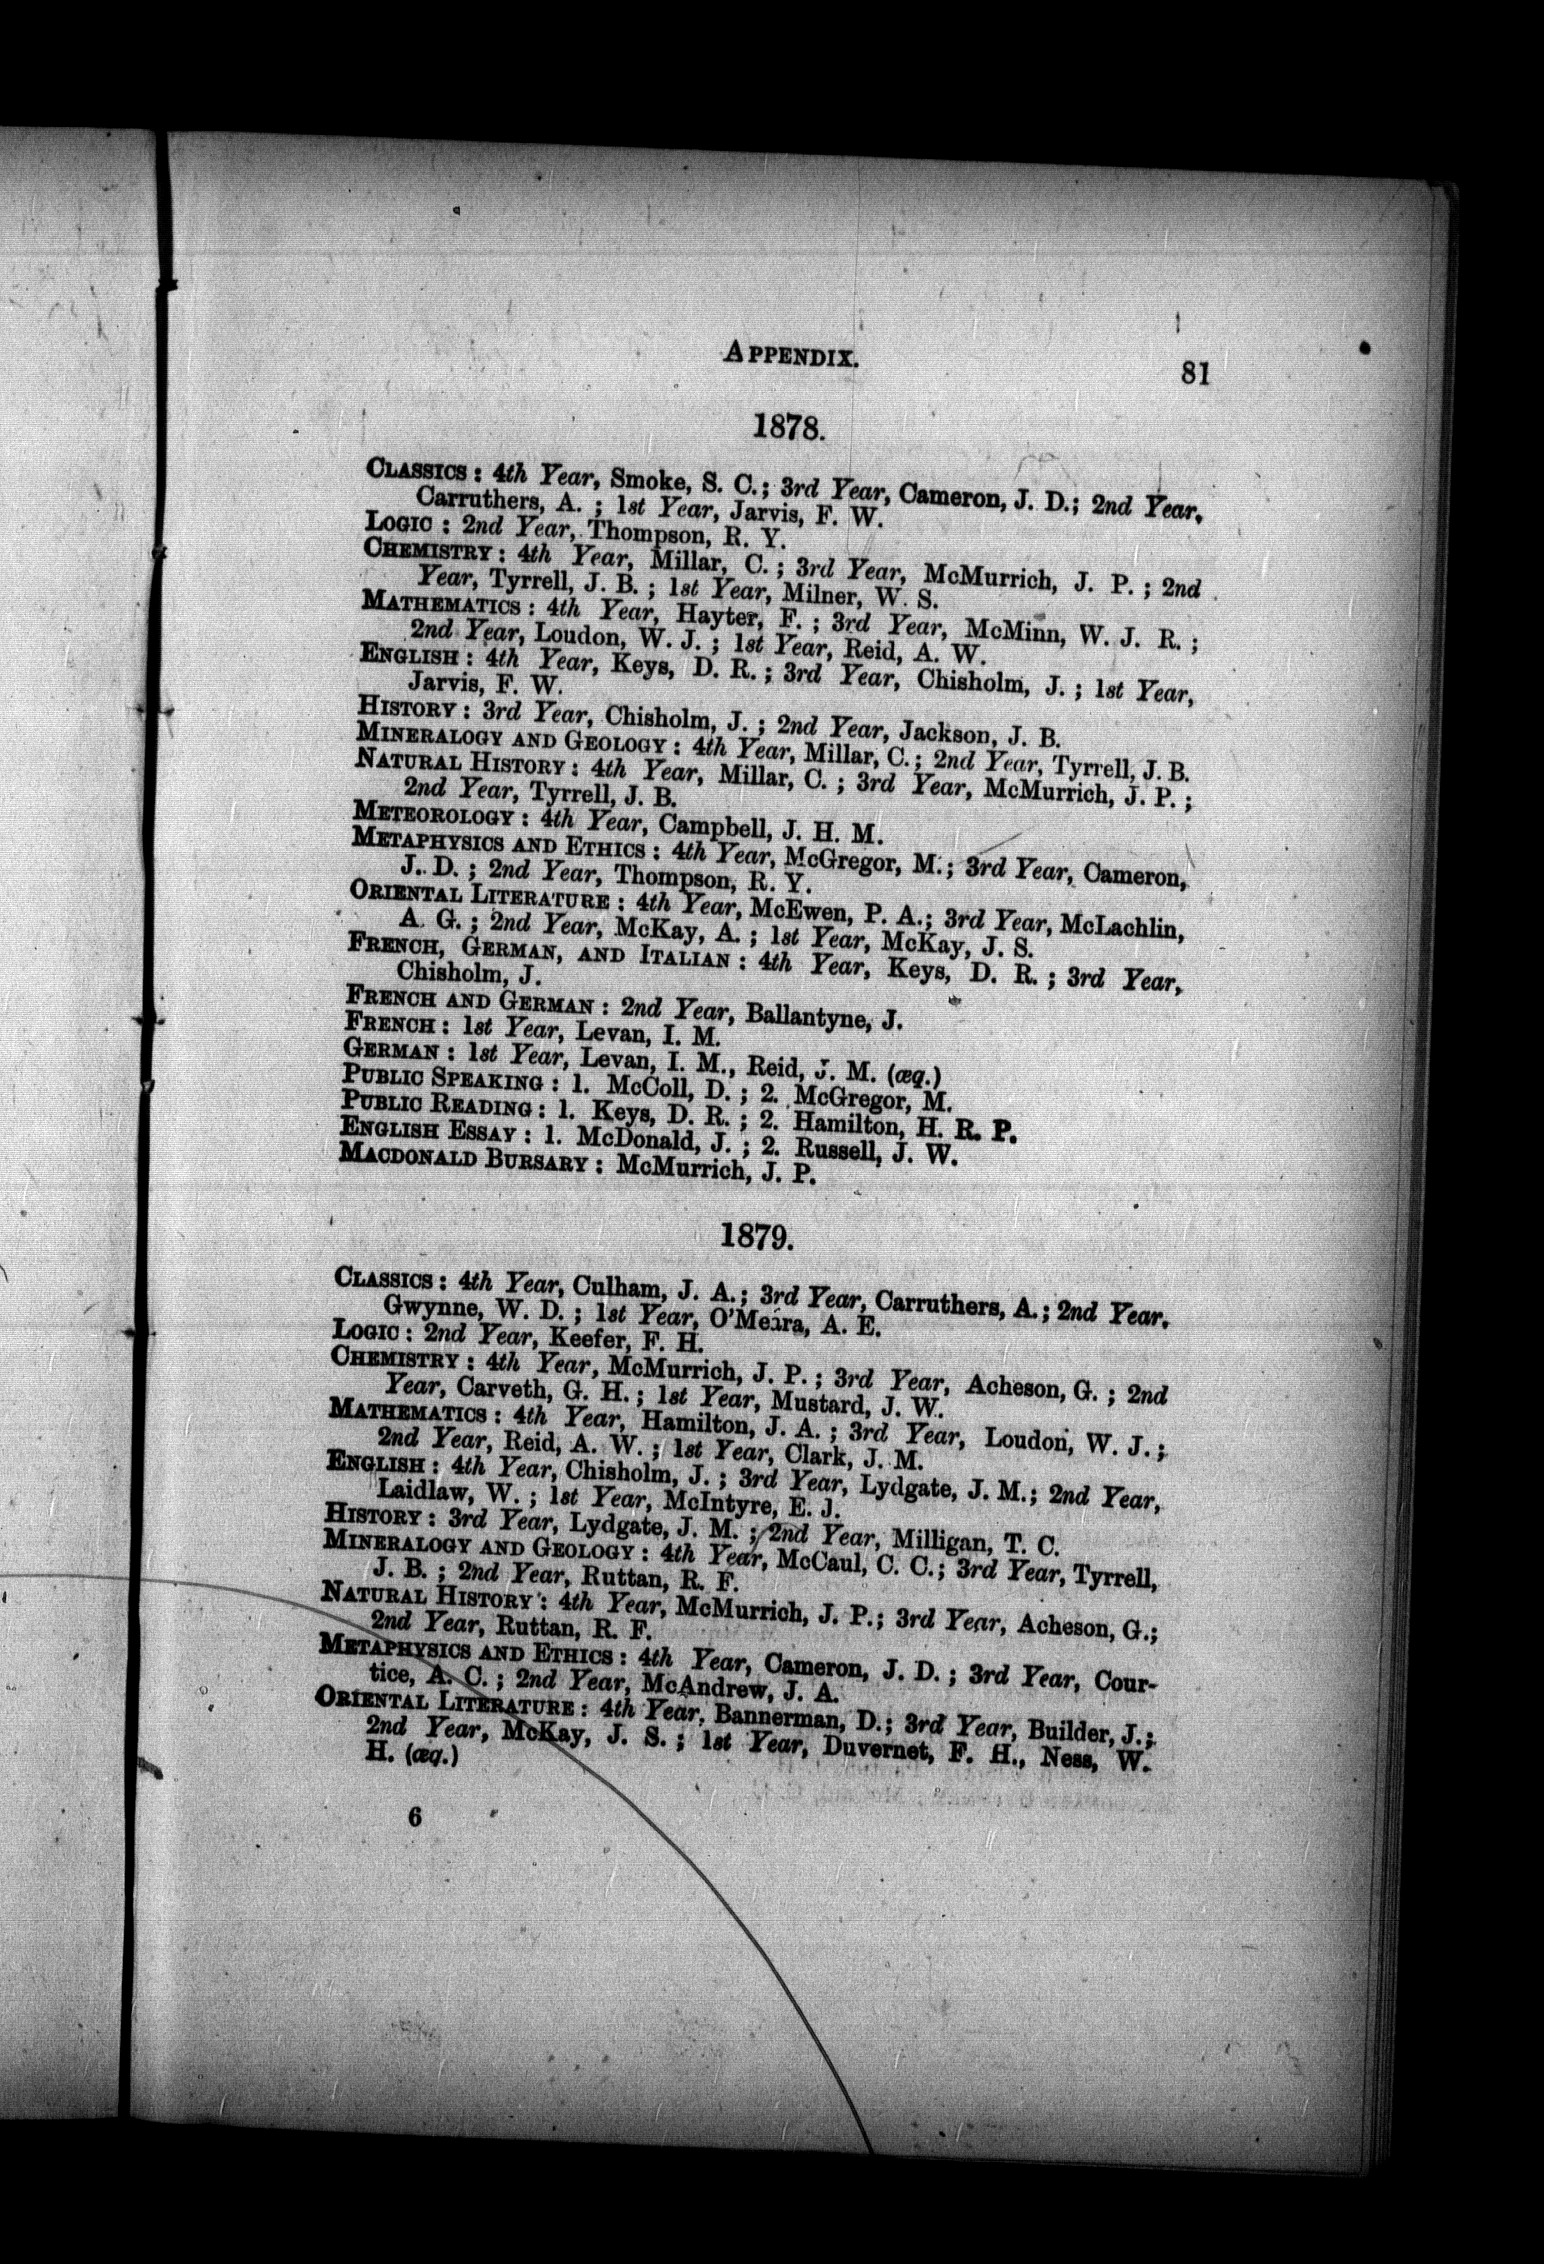 APPENDIX.
81
1878.
CLASSICS : 4th Year, Smoke, S. C.; 3rd Year, Cameron, J. D.; 2nd Year,
Carruthers, A. ; 1st Year, Jarvis, F. W.
LOGIC : 2nd Year, Thompson, R. Y.
CHEMISTRY : 4th Year, Millar, C. ; 3rd Year, McMurrich, J. P. ; 2nd
Year, Tyrrell, J. B. ; 1st Year, Milner, W. S.
MATHEMATICS : 4th Year, Hayter, F. ; 3rd Year, McMinn, W. J. R. ;
2nd Year, Loudon, W. J. ; 1st Year, Reid, A. W.
ENGLISH : 4th Year, Keys, D. R. ; 3rd Year, Chisholm, J. ; 1st Year,
Jarvis, F. W.
HISTORY : 3rd Year, Chisholm, J. ; 2nd Year, Jackson, J. B.
MINERALOGY AND GEOLOGY : 4th Year, Millar, C. ; 2nd Year, Tyrrell, J. B.
NATURAL HISTORY : 4th Year, Millar, C. ; 3rd Year, McMurrich, J. P. ;
2nd Year, Tyrrell, J. B.
METEOROLOGY : 4th Year, Campbell, J. H. M.
METAPHYSICS AND ETHICS : 4th Year, McGregor, M. ; 3rd Year, Cameron,
J. D. ; 2nd Year, Thompson, R. Y.
ORIENTAL LITERATURE : 4th Year, McEwen, P. A.; 3rd Year, McLachlin,
A. G. ; 2nd Year, McKay, A. ; 1st Year, McKay, J. S.
FRENCH, GERMAN, AND ITALIAN : 4th Year, Keys, D. R. ; 3rd Year,
Chisholm, J.
FRENCH AND GERMAN : 2nd Year, Ballantyne, J.
FRENCH : 1st Year, Levan, I. M.
GERMAN : 1st Year, Levan, I. M., Reid, J. M. (æq.)
PUBLIC SPEAKING : 1. McColl, D. ; 2. McGregor, M.
PUBLIC READING : 1. Keys, D. R. ; 2. Hamilton, H. R. P.
ENGLISH ESSAY : 1. McDonald, J. ; 2. Russell, J. W.
MACDONALD BURSARY : McMurrich, J. P.
1879.
CLASSICS : 4th Year, Culham, J. A.; 3rd Year, Carruthers, A.; 2nd Year,
Gwynne, W. D. ; 1st Year, O'Meara, A. E.
LOGIC : 2nd Year, Keefer, F. H.
CHEMISTRY : 4th Year, McMurrich, J. P. ; 3rd Year, Acheson, G. ; 2nd
Year, Carveth, G. H. ; 1st Year, Mustard, J. W.
MATHEMATICS : 4th Year, Hamilton, J. A. ; 3rd Year, Loudon, W. J. ;
2nd Year, Reid, A. W. ; 1st Year, Clark, J. M.
ENGLISH : 4th Year, Chisholm, J. ; 3rd Year, Lydgate, J. M.; 2nd Year,
Laidlaw, W. ; 1st Year, McIntyre, E. J.
HISTORY : 3rd Year, Lydgate, J. M. ; 2nd Year, Milligan, T. C.
MINERALOGY AND GEOLOGY : 4th Year, McCaul, C. C.; 3rd Year, Tyrrell,
J. B. ; 2nd Year, Ruttan, R. F.
NATURAL HISTORY : 4th Year, McMurrich, J. P.; 3rd Year, Acheson, G.;
2nd Year, Ruttan, R. F.
METAPHYSICS AND ETHICS : 4th Year, Cameron, J. D. ; 3rd Year, Cour-
tice, A. C. ; 2nd Year, McAndrew, J. A.
ORIENTAL LITERATURE : 4th Year, Bannerman, D.; 3rd Year, Builder, J.;
2nd Year, McKay, J. S. ; 1st Year, Duvernet, F. H., Ness, W.
H. (æq.)
6